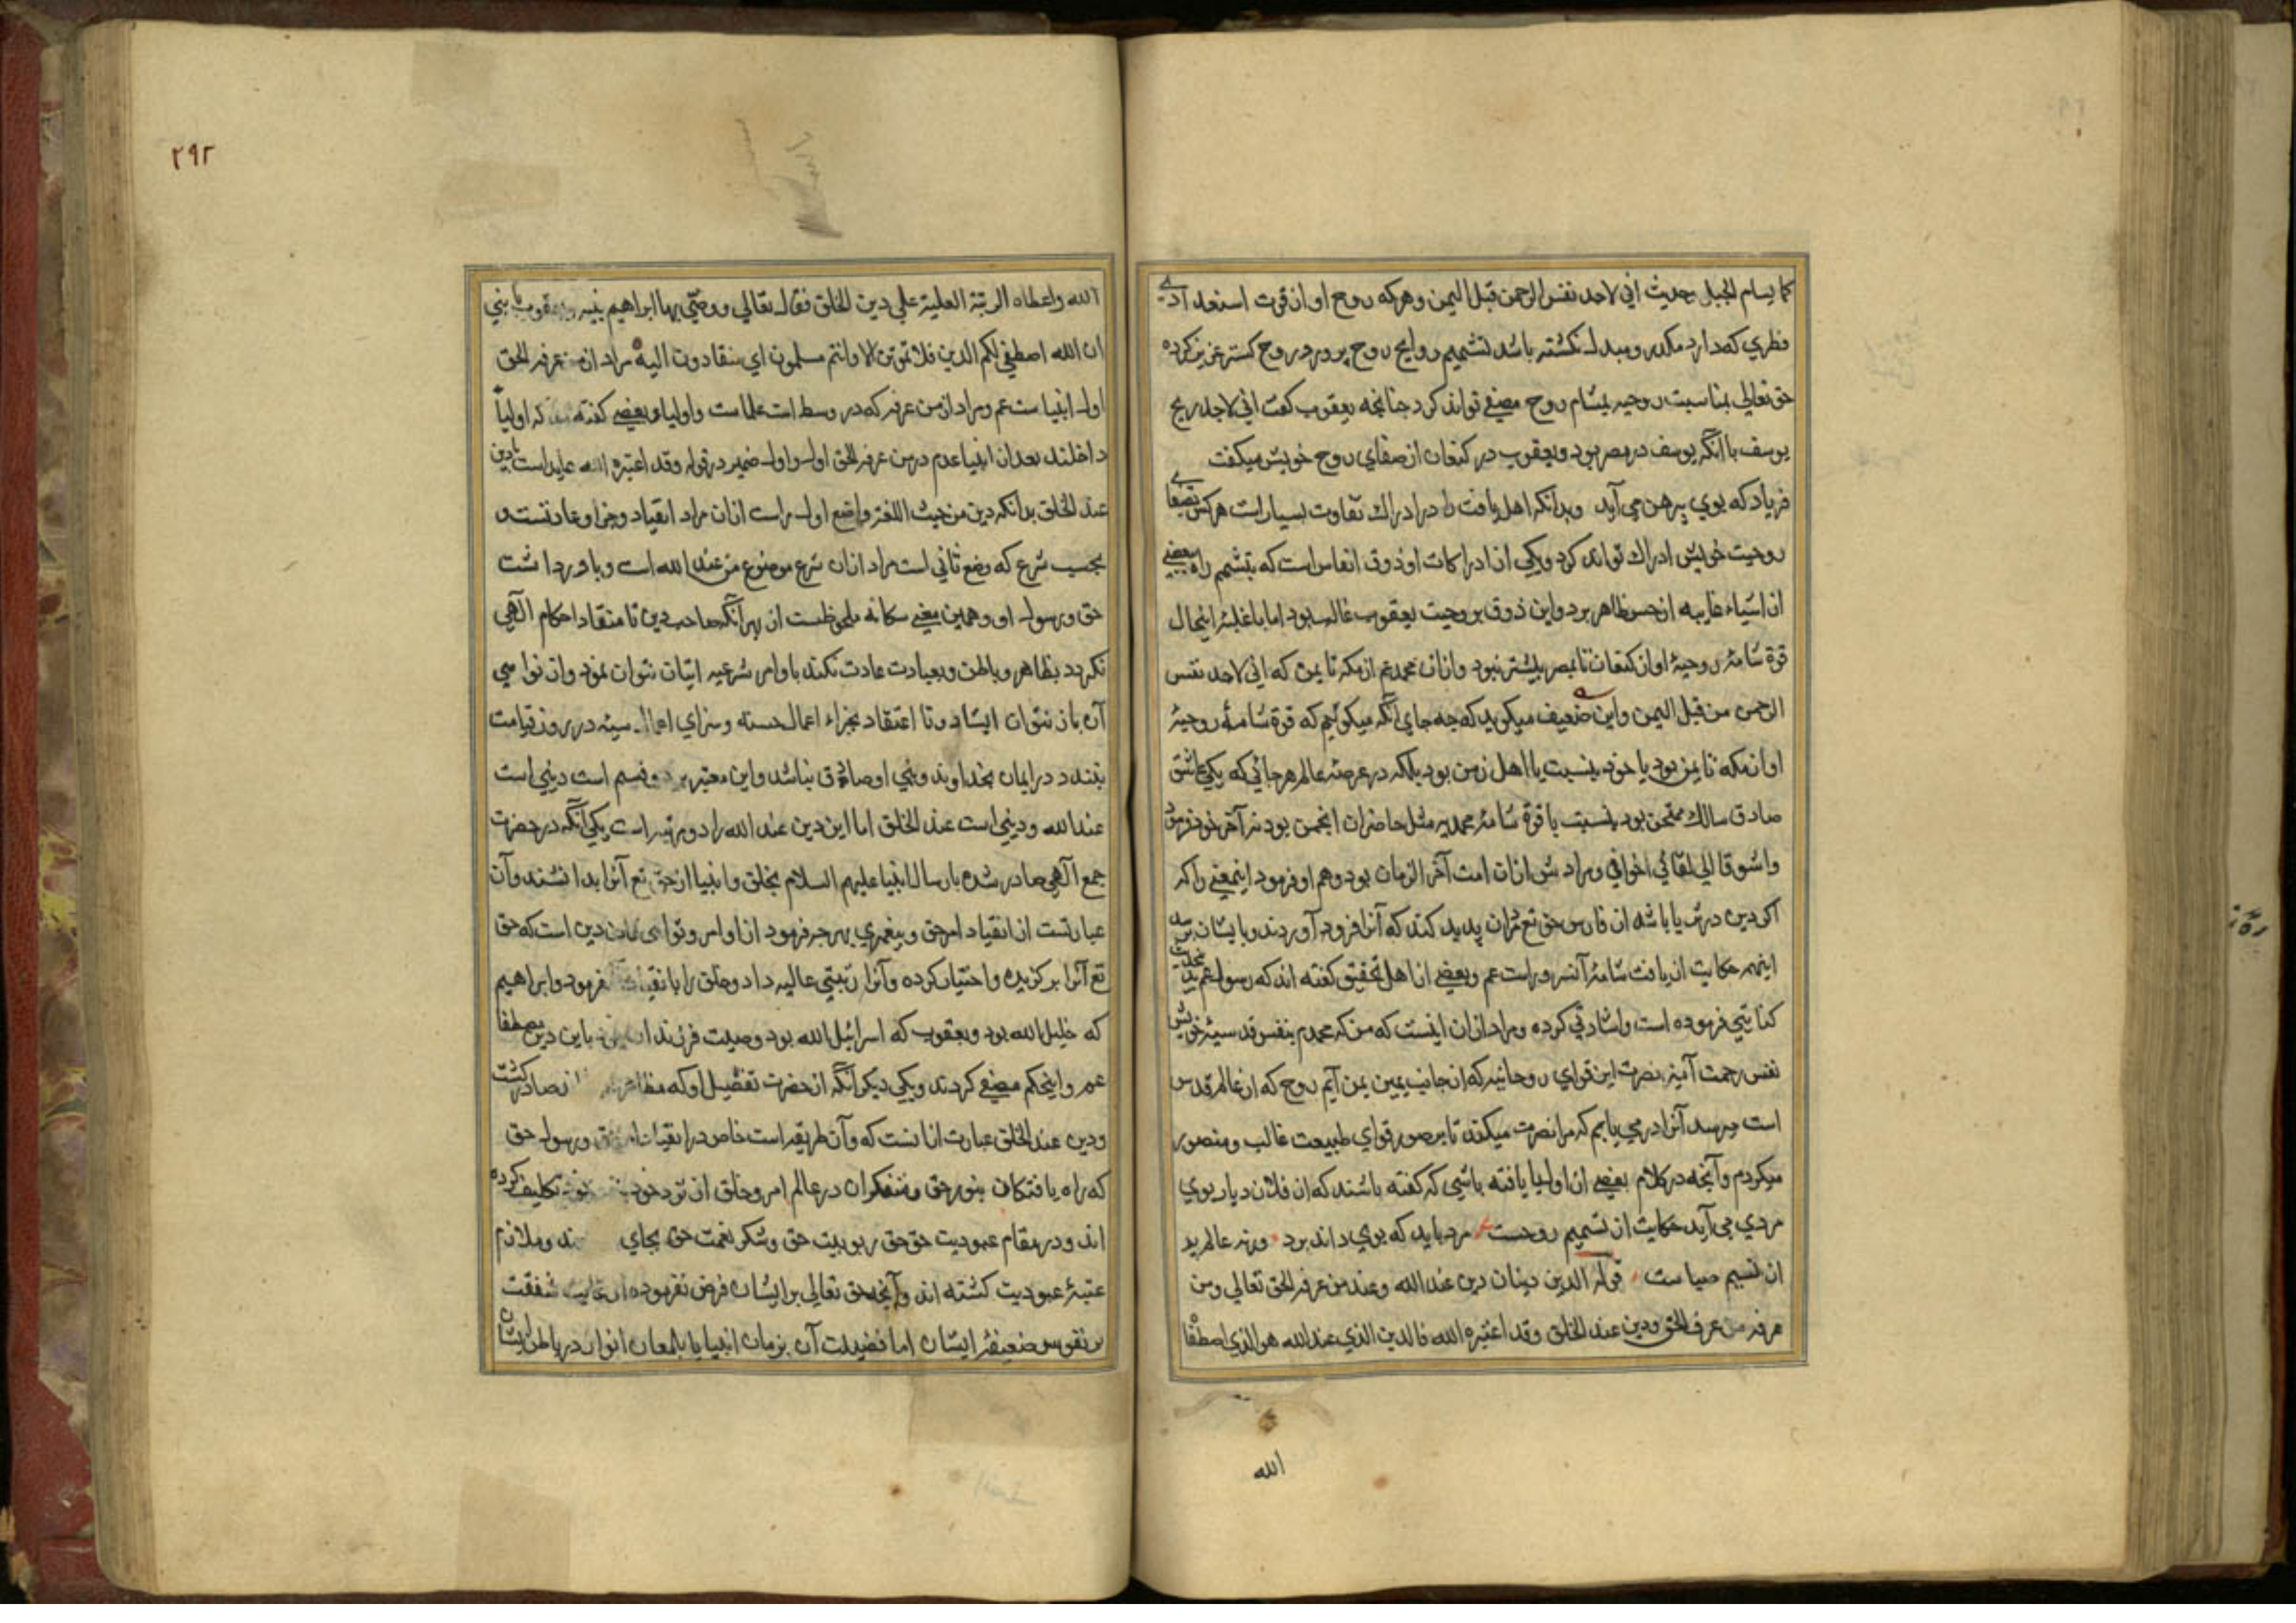 كما يسام الجبل بحديث اني لاجد نفس الرحمن قبل اليمن وهركه روح او ان قوت استعدادى
فطري كه دارد مكدر ومبدل نكشته باشد تشميم روايح روح پرور در روح كستر عزيز كرده
حق تعالي بمناسبت روحيه بمشام روح مصفى تواند كرد جنانجه يعقوب كفت اني لاجد ريح
يوسف با آنكه يوسف در مصر بود ويعقوب در كنعان از صفاي روح خويش ميكفت
فرياد كه بوي پيرهن مي آيد وبدانكه اهل يافت را در ادراك تفاوت بسيار است هركس بصفاى
روحيت خويش ادراك تواند كرد ويكي از ادراكات او ذوق انفاس است كه بتشمم راه ببعضى
از اشياء غايبه از حس ظاهر برد واين ذوق بر روحيت يعقوب غالب بود اما با غلبهٔ اينحال
قوة شامهٔ روحيهٔ او از كنعان تا بمصر بيشتر نبود وازان محمد عم از مكه تا يمن كه اني لاجد نفس
الرحمن من قبل اليمن واين ضعيف ميكويد كه جه جاي آنكه ميكوئيم كه قوة شامهٔ روحيهٔ
او از مكه تا يمن بود يا خود بنسبت با اهل زمن بود بلكه در عرصهٔ عالم هرجائي كه يكي عاشق
صادق سالك ممتحن بود بنسبت با قوة شامهٔ محمديه مثل حاضران انجمن بود نه آخر خود فرمود
واشوقا الي لقائي اخواني ومرادش ازان امت آخر الزمان بود وهم او فرمود اينمعني را كه
اكر دين در ثريا باشد از فارس حق تع مردان پديد كند كه آنرا فرود آوردند وبايشان برسد
اينهمه حكايت از يافت شامهٔ آنسرور است عم وبعضى از اهل تحقيق كفته اند كه رسول عم بدين حديث
كنايتي فرموده است واشارتي كرده ومراد ازان اينست كه من كه محمدم بنفس قدسيهٔ خويش
نفس رحمت آميز نصرت اين قواي روحانيه كه از جانب يمين يمن آيم روح كه از عالم قدس
است ميرسد آنرا در مي يابم كه مرا نصرت ميكند تا بر صور قواي طبيعت غالب ومنصور
ميكردم وآنجه در كلام بعضى از اوليا يافته باشي كه كفته باشند كه از فلان ديار بوي
مردي مي آيد حكايت از تشميم روحست مرد بايد كه بوي داند برد ورنه عالم پر
از نسيم صباست قوله الدين دينان دين عند الله وعند من عرفه الحق تعالي ومن
عرفه من عرف الحق ودين عند الخلق وقد اعتبره الله فالدين الذي عند الله هو الذي اصطفاه
الله
٢٩٢
الله واعطاه الرتبة العلية علي دين الخلق فقال تعالي ووصي بها ابراهيم بنيه ويعقوب يا بني
ان الله اصطفي لكم الدين فلا تموتن الا وانتم مسلمون اي منقادون اليه مراد از من عرفه الحق
اول انبياست عم ومراد از من عرفه كه در وسط است علماست واولياء وبعضى كفته كه اوليا
داخلند بعد از انبيا عدم در من عرفه الحق اول واول ضمير در قوله وقد اعتبره الله عايد است بادين
عند الخلق بدانكه دين من حيث اللغة واضع اول راست ازان مراد انقياد وجزا وعادتست و
بحسب شرع كه وضع ثاني است مراد ازان شرع موضوع من عند الله است وباور داشت
حق ورسول او وهمين معني سكانه ملحوظست از بهر آنكه صاحب دين تا منقاد احكام الهي
نكردد بظاهر وباطن وبعبادت عادت نكند باوامر شرعيه اتيان نتوان نمود وان نواهي
آن باز نتوان ايستاد وتا اعتقاد بجزاء اعمال حسنه وسزاي اعمال سيئه در روز قيامت
نبندد در ايمان بخداوند ونبي او صادق نباشد واين معتبر بر دو قسم است ديني است
عند الله وديني است عند الخلق اما اين دين عند الله را دو مرتبه است يكي آنكه در حضرت
جمع الهي صادر شده بارسال انبيا عليهم السلام بخلق وانبيا از حق تع آنرا بدانشند وآن
عبارتست از انقياد امر حق وپيغمبري بهرچه فرمود از اوامر ونواهي دين است كه حق
تع آنرا بركزيده واختيار كرده وآنرا رتبتي عاليه داد وخلق را بانقياد فرمود وابراهيم
كه خليل الله بود ويعقوب كه اسرائيل الله بود وصيت فرزندان باين دين مصطفا
عم واينحكم مصنع كردند ويكي ديكر آنكه از حضرت تفضيل او كه صادر كشت
ودين عند الخلق عبارت ازانست كه وآن طريقه است خاص در انقياد ورسول حق
كه راه يافتكان بنور حق ومتفكران در عالم امر وخلق از نزد خود تكليف كرده
اند ودر مقام عبوديت حق حق ربوبيت حق وشكر نعمت حق بجاي ند وملازم
عتبهٔ عبوديت كشته اند وآنجه حق تعالي بر ايشان فرض نفرموده از غايت شفقت
بر نفوس ضعيفهٔ ايشان اما فضيلت آن بزمان انبيا يا بلمعان انوار در باطن ايشان